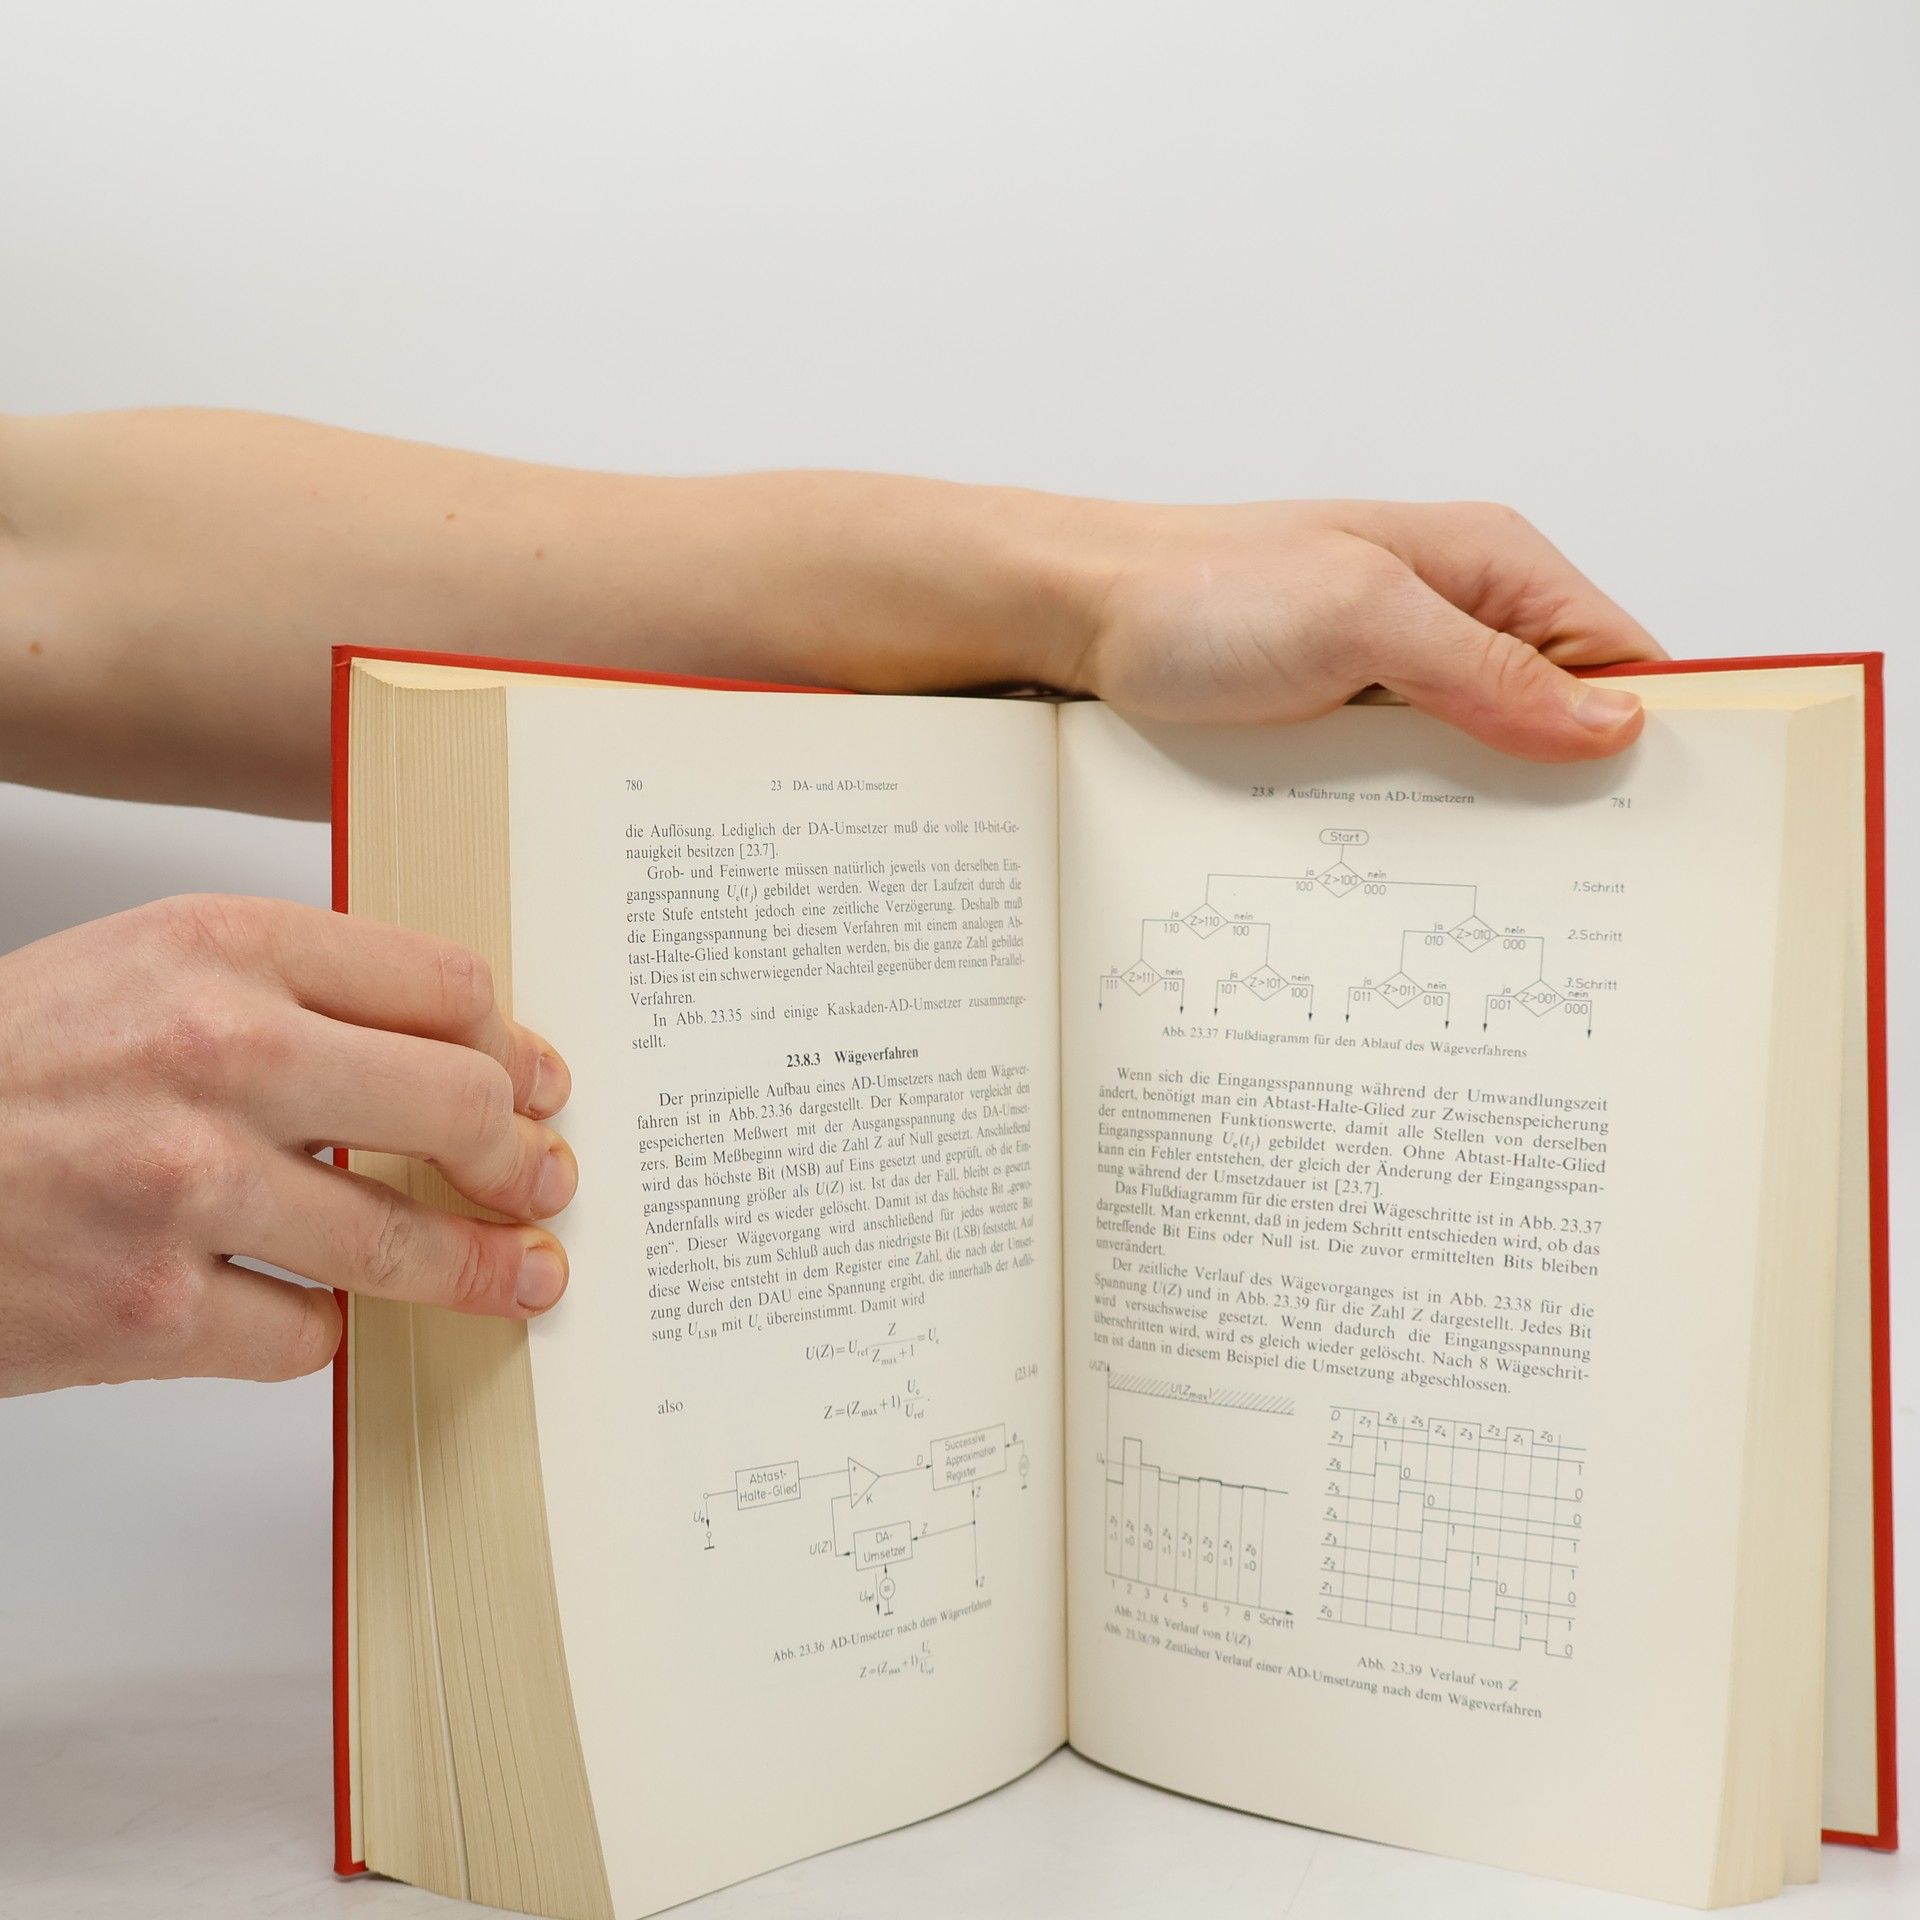 780
23 DA- und AD-Umsetzer
die Auflösung. Lediglich der DA-Umsetzer muß die volle 10-bit-Ge-
nauigkeit besitzen [23.7].
Grob- und Feinwerte müssen natürlich jeweils von derselben Ein-
gangsspannung Uₑ(tⱼ) gebildet werden. Wegen der Laufzeit durch die
erste Stufe entsteht jedoch eine zeitliche Verzögerung. Deshalb muß
die Eingangsspannung bei diesem Verfahren mit einem analogen Ab-
tast-Halte-Glied konstant gehalten werden, bis die ganze Zahl gebildet
ist. Dies ist ein schwerwiegender Nachteil gegenüber dem reinen Parallel-
Verfahren.
In Abb. 23.35 sind einige Kaskaden-AD-Umsetzer zusammenge-
stellt.
23.8.3 Wägeverfahren
Der prinzipielle Aufbau eines AD-Umsetzers nach dem Wägever-
fahren ist in Abb. 23.36 dargestellt. Der Komparator vergleicht den
gespeicherten Meßwert mit der Ausgangsspannung des DA-Umset-
zers. Beim Meßbeginn wird die Zahl Z auf Null gesetzt. Anschließend
wird das höchste Bit (MSB) auf Eins gesetzt und geprüft, ob die Ein-
gangsspannung größer als U(Z) ist. Ist das der Fall, bleibt es gesetzt.
Andernfalls wird es wieder gelöscht. Damit ist das höchste Bit „gewo-
gen“. Dieser Wägevorgang wird anschließend für jedes weitere Bit
wiederholt, bis zum Schluß auch das niedrigste Bit (LSB) feststeht. Auf
diese Weise entsteht in dem Register eine Zahl, die nach der Umset-
zung durch den DAU eine Spannung ergibt, die innerhalb der Auflö-
sung U_LSB mit Uₑ übereinstimmt. Damit wird
U(Z)=U_ref Z/(Z_max+1)=Uₑ
also
Z=(Z_max+1) Uₑ/U_ref.
(23.14)
Abtast-
Halte-Glied
K
D
Successive
Approximation
Register
Φ
Uₑ
Z
U(Z)
DA-
Umsetzer
Z
U_ref
Z
Abb. 23.36 AD-Umsetzer nach dem Wägeverfahren
Z=(Z_max+1) Uₑ/U_ref
23.8 Ausführung von AD-Umsetzern
781
Start
ja 100 Z>100 nein 000
1.Schritt
ja 110 Z>110 nein 100
ja 010 Z>010 nein 000
2.Schritt
ja 111 Z>111 nein 110
ja 101 Z>101 nein 100
ja 011 Z>011 nein 010
ja 001 Z>001 nein 000
3.Schritt
Abb. 23.37 Flußdiagramm für den Ablauf des Wägeverfahrens
Wenn sich die Eingangsspannung während der Umwandlungszeit
ändert, benötigt man ein Abtast-Halte-Glied zur Zwischenspeicherung
der entnommenen Funktionswerte, damit alle Stellen von derselben
Eingangsspannung Uₑ(tⱼ) gebildet werden. Ohne Abtast-Halte-Glied
kann ein Fehler entstehen, der gleich der Änderung der Eingangsspan-
nung während der Umsetzdauer ist [23.7].
Das Flußdiagramm für die ersten drei Wägeschritte ist in Abb. 23.37
dargestellt. Man erkennt, daß in jedem Schritt entschieden wird, ob das
betreffende Bit Eins oder Null ist. Die zuvor ermittelten Bits bleiben
unverändert.
Der zeitliche Verlauf des Wägevorganges ist in Abb. 23.38 für die
Spannung U(Z) und in Abb. 23.39 für die Zahl Z dargestellt. Jedes Bit
wird versuchsweise gesetzt. Wenn dadurch die Eingangsspannung
überschritten wird, wird es gleich wieder gelöscht. Nach 8 Wägeschrit-
ten ist dann in diesem Beispiel die Umsetzung abgeschlossen.
U(Z)
U(Z_max)
Uₑ
z₇ z₆ z₅ z₄ z₃ z₂ z₁ z₀
=1 =0 =0 =1 =1 =0 =1 =0
1 2 3 4 5 6 7 8 Schritt
Abb. 23.38 Verlauf von U(Z)
D z₇ z₆ z₅ z₄ z₃ z₂ z₁ z₀
z₇ 1 1
z₆ 0 0
z₅ 0 0
z₄ 1 1
z₃ 1 1
z₂ 0 0
z₁ 1 1
z₀ 0
Abb. 23.39 Verlauf von Z
Abb. 23.38/39 Zeitlicher Verlauf einer AD-Umsetzung nach dem Wägeverfahren